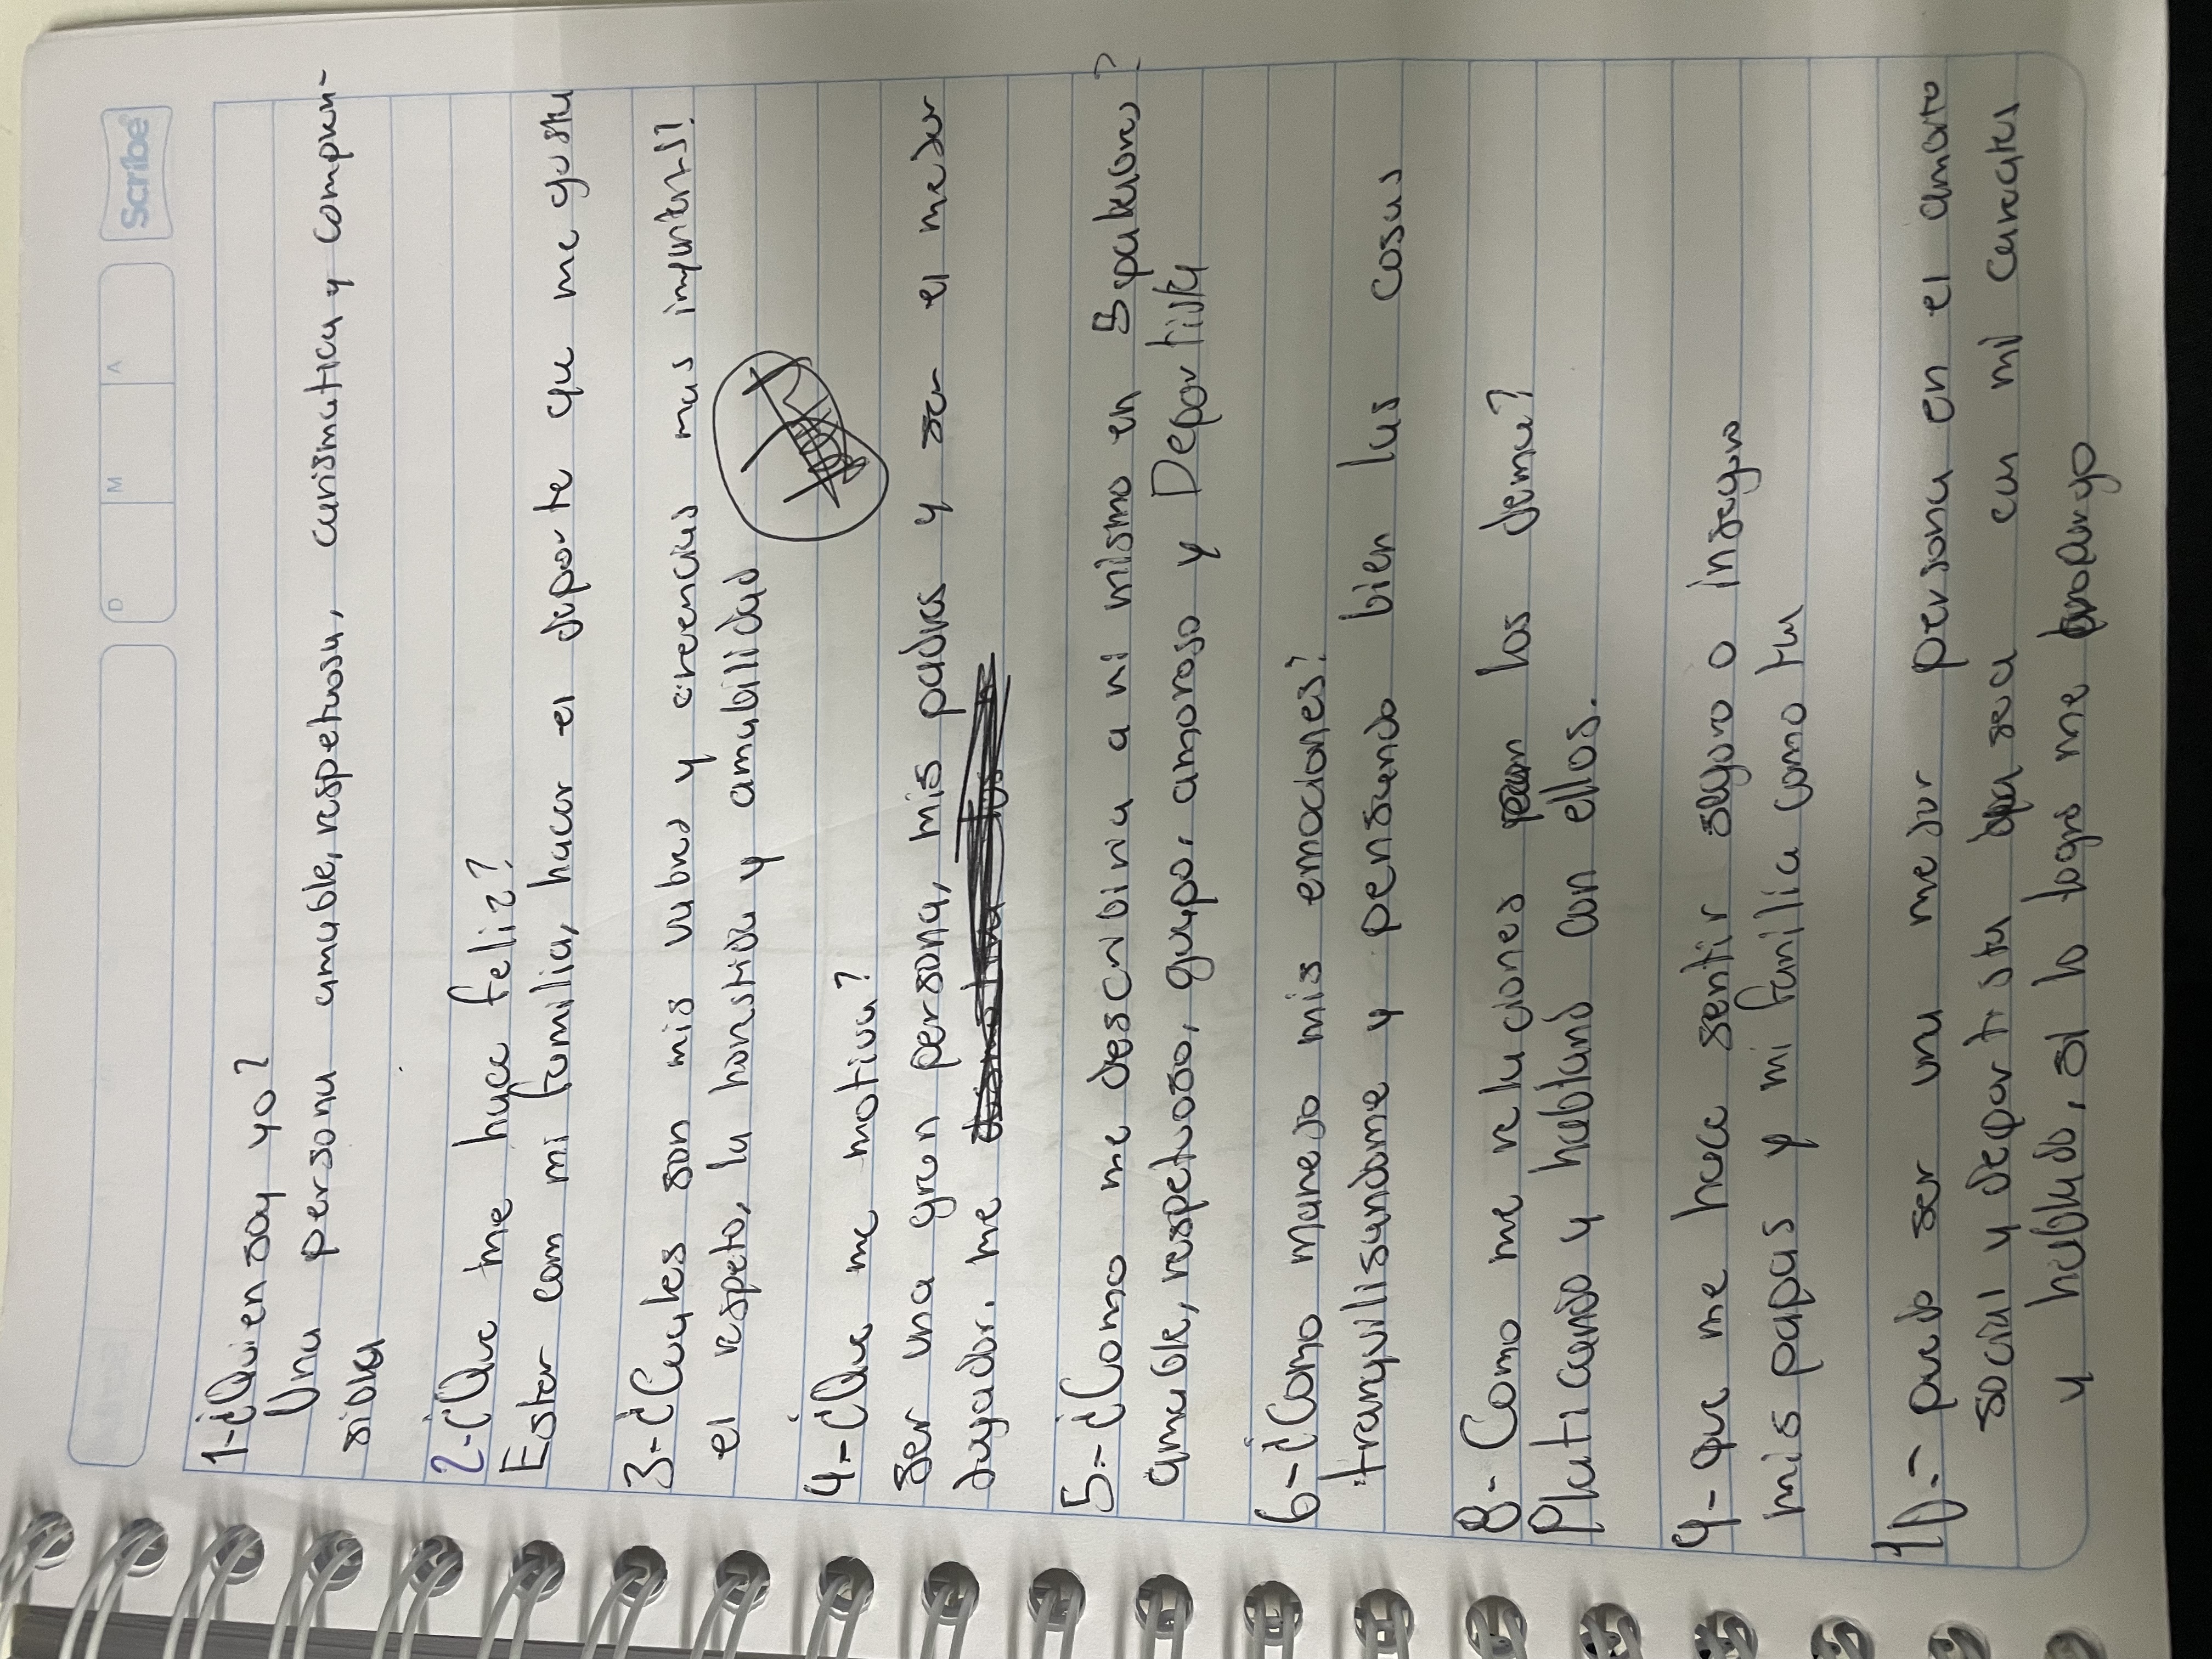 Scribe
D M A
1-¿Quien soy yo?
Una persona amable, respetuosa, carismatica y compren-
siba
2-¿Que me hace feliz?
Estar com mi familia, hacer el deporte que me gusta
3-¿Cuales son mis valores y creencias mas importants?
el respeto, la honstida y amabilidad
4-¿Que me motiva?
ser una gran persona, mis padres y ser el mejor
jugador. me
5-¿Como me describiria a mi mismo en 5 palabras?
amable, respetuoso, guapo, amoroso y Deportista
6-¿Como manejo mis emociones?
tranquilisandome y pensando bien las cosas
8- Como me relaciones con los demas?
Platicando y hablando con ellos.
9- que me hace sentir seguro o inseguro
mis papas y mi familia como tal
10.- puedo ser una mejor persona en el amorto
social y deportista ya sea en mi caracter
y hablado, si lo logro me propongo